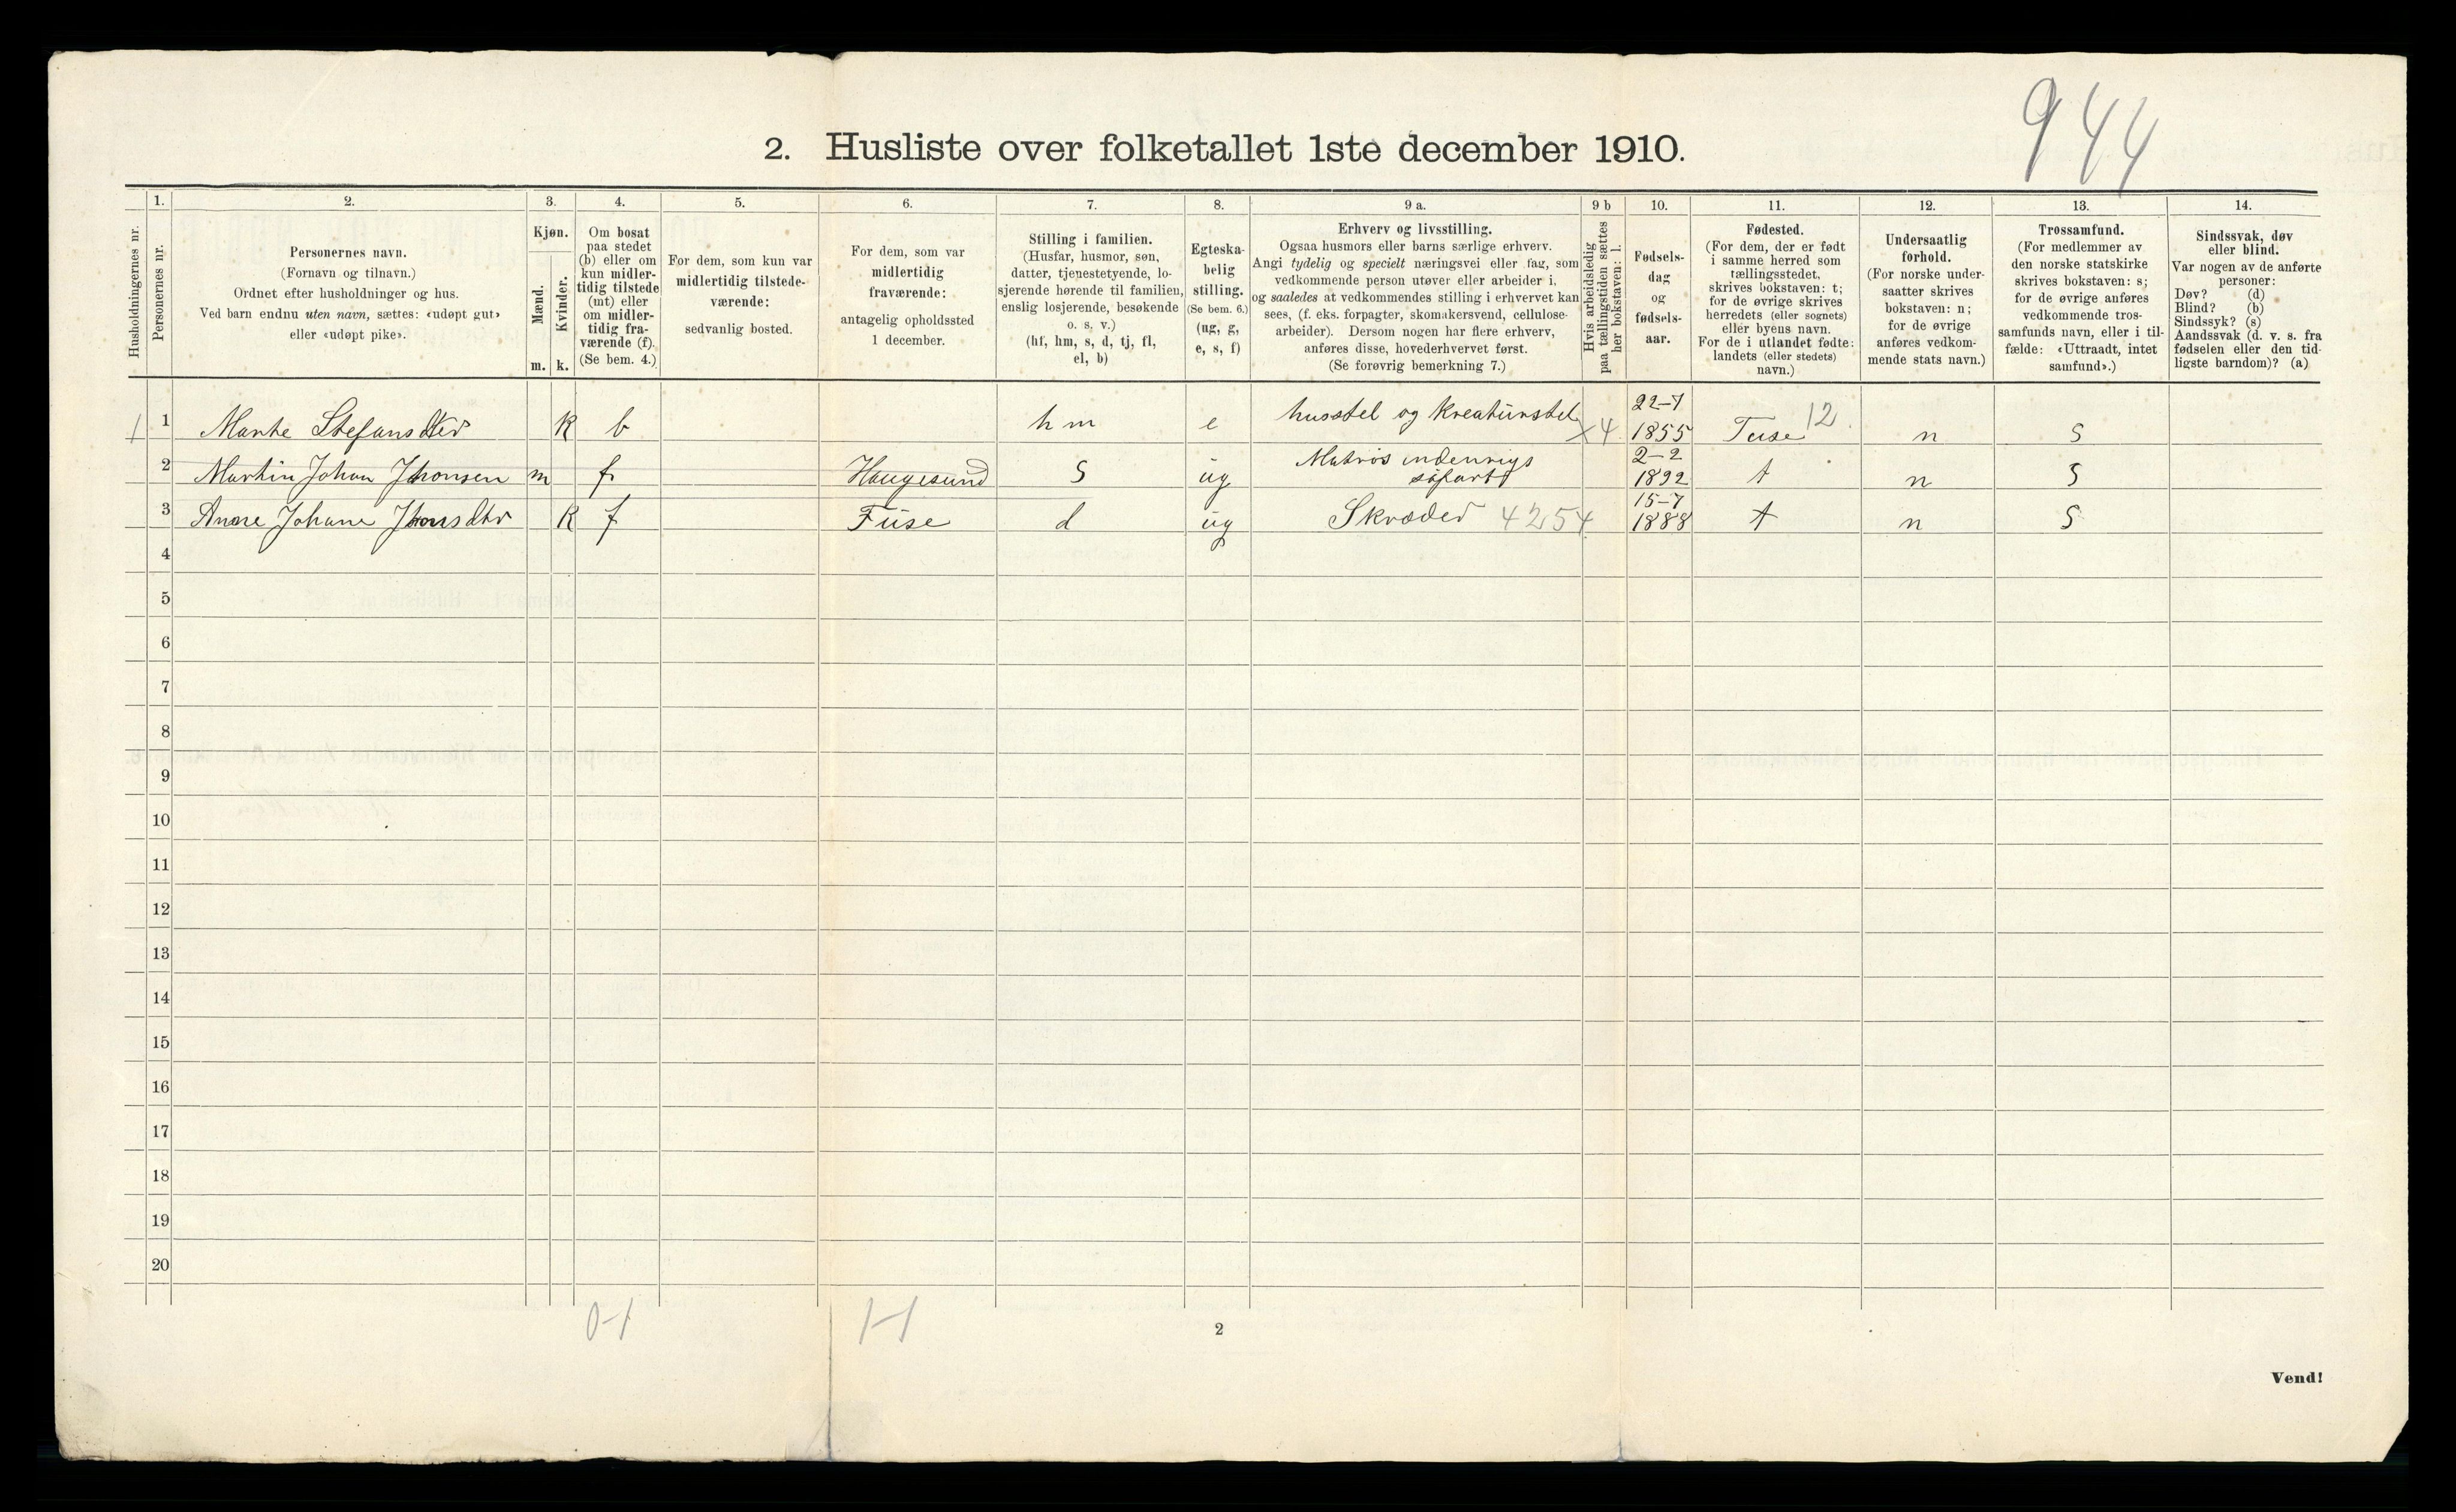 944
2. Husliste over folketallet 1ste december 1910.
Husholdningernes nr.
1.
Personernes nr.
2.
Personernes navn.
(Fornavn og tilnavn.)
Ordnet efter husholdninger og hus.
Ved barn endnu uten navn, sættes: «udøpt gut»
eller «udøpt pike».
3.
Kjøn.
Mænd.
Kvinder.
m. k.
4.
Om bosat
paa stedet
(b) eller om
kun midler-
tidig tilstede
(mt) eller
om midler-
tidig fra-
værende (f).
(Se bem. 4.)
5.
For dem, som kun var
midlertidig tilstede-
værende:
sedvanlig bosted.
6.
For dem, som var
midlertidig
fraværende:
antagelig opholdssted
1 december.
7.
Stilling i familien.
(Husfar, husmor, søn,
datter, tjenestetyende, lo-
sjerende hørende til familien,
enslig losjerende, besøkende
o. s, v.)
(hf, hm, s, d, tj, fl,
el, b)
8.
Egteska-
belig
stilling.
(Se bem. 6.)
(ug, g,
e, s, f)
9 a.
Erhverv og livsstilling.
Ogsaa husmors eller barns særlige erhverv.
Angi tydelig og specielt næringsvei eller fag, som
vedkommende person utøver eller arbeider i,
og saaledes at vedkommendes stilling i erhvervet kan
sees, (f. eks. forpagter, skomakersvend, cellulose-
arbeider). Dersom nogen har flere erhverv,
anføres disse, hovederhvervet først.
(Se forøvrig bemerkning 7.)
9 b
Hvis arbeidsledig
paa tællingstiden sættes
her bokstaven: l.
10.
Fødsels-
dag
og
fødsels-
aar.
11.
Fødested.
(For dem, der er født
i samme herred som
tællingsstedet,
skrives bokstaven: t;
for de øvrige skrives
herredets (eller sognets)
eller byens navn.
For de i utlandet fødte:
landets (eller stedets)
navn.)
12.
Undersaatlig
forhold.
(For norske under-
saatter skrives
bokstaven: n;
for de øvrige
anføres vedkom-
mende stats navn.)
13.
Trossamfund.
(For medlemmer av
den norske statskirke
skrives bokstaven: s;
for de øvrige anføres
vedkommende tros-
samfunds navn, eller i til-
fælde: «Uttraadt, intet
samfund».)
14.
Sindssvak, døv
eller blind.
Var nogen av de anførte
personer:
Døv? (d)
Blind? (b)
Sindssyk? (s)
Aandssvak (d. v. s. fra
fødselen eller den tid-
ligste barndom)? (a)
1 1 Marte Stefansdter K b hm e husstel og Kreaturstel x4 22-7 1855 Fuse 12 n S
2 Martin Johan Jhonsen m f Haugesund S ug Matros indenrigs søfart 2-2 1892 t n S
3 Anne Johane Jhonsdtr K f Fuse d ug Skræder 4254 15-7 1888 t n S
4
5
6
7
8
9
10
11
12
13
14
15
16
17
18
19
20
0-1 1-1
2
Vend!